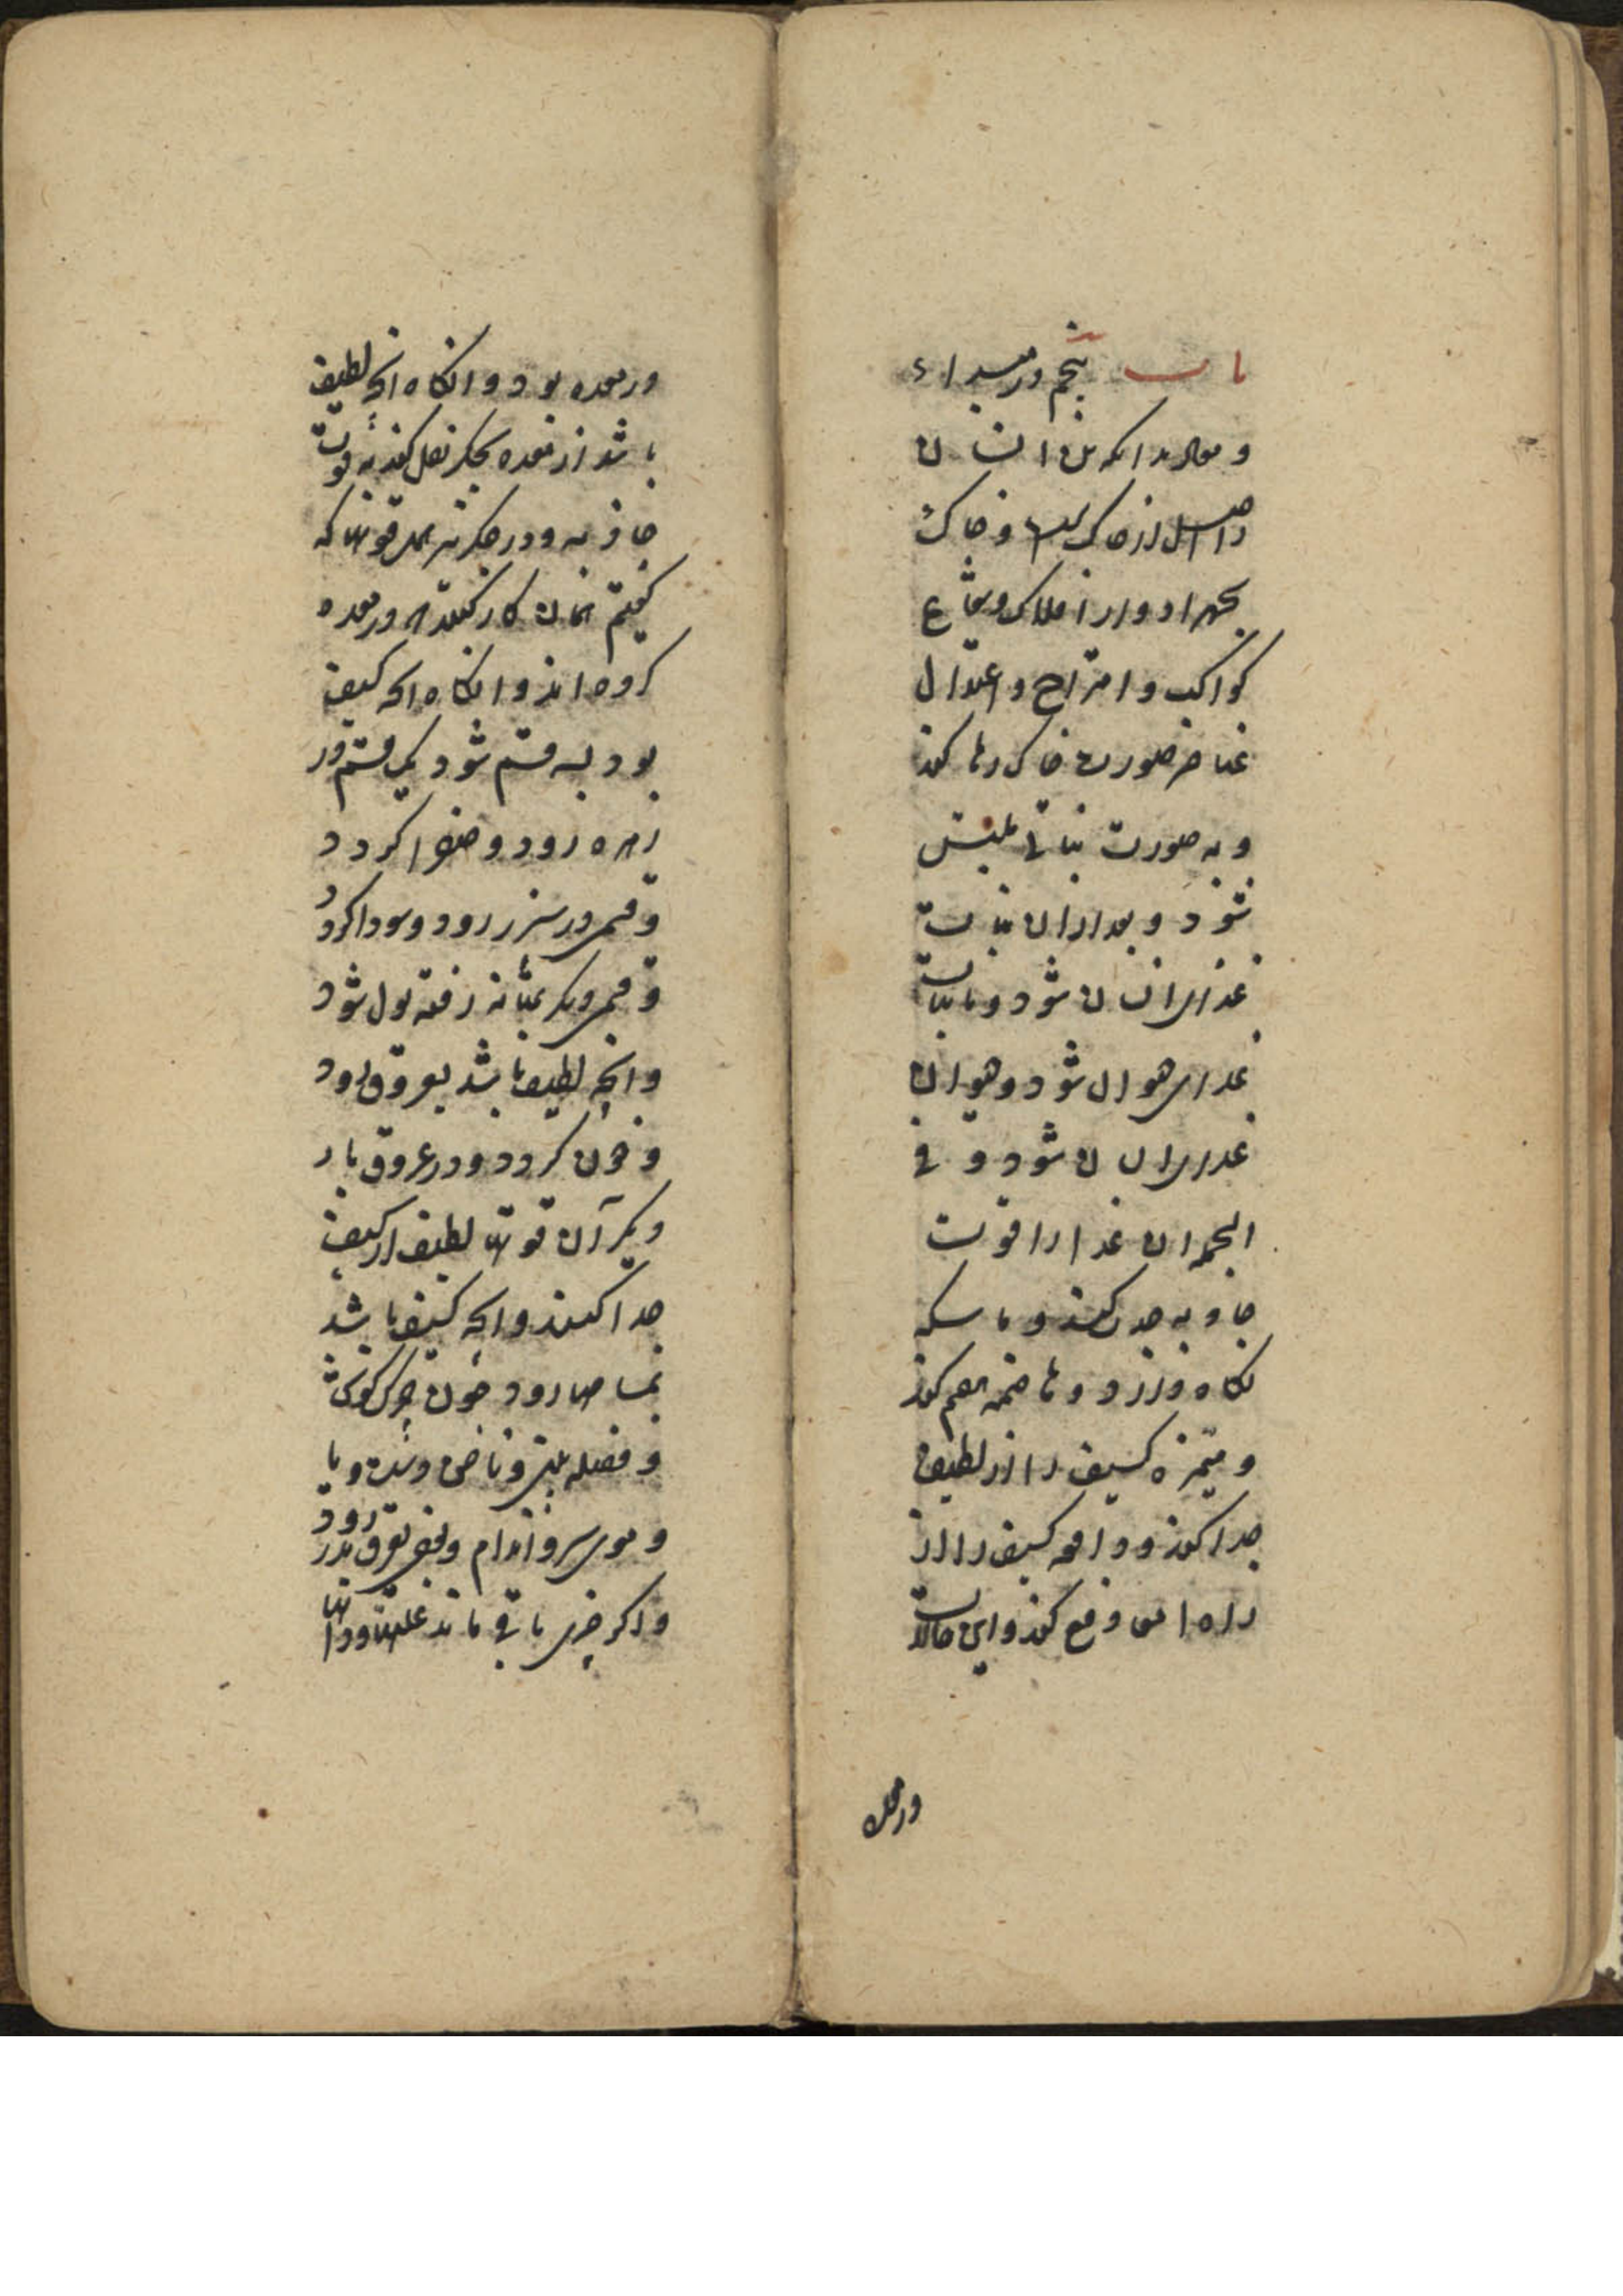 باب پنجم در مبداء
و معاد بدانکه تن انسان
را اصل از خاکست و خاک
بجهة ادوار افلاک و شعاع
کواکب و امتزاج و اعتدال
عناصر صورت خاکی رها کند
و به صورت نباتی ملتبس
شود و بعد از ان نبات
غذای انسان شود و یا نبات
غذای حیوان شود و حیوان
غذای انسان شود و فی
الجمله ان غذا را قوت
جاذبه جذب کند و ماسکه
نگاه دارد و هاضمه هضم کند
و ممیزه کثیف را از لطیف
جدا کند و دافعه کثیف را از
راه امعا دفع کند و این حالات
در معده
در معده بود و انکاه انچه لطیف
باشد از معده بجکر نقل کند به قوت
جاذبه و در جکر نیز همه قوتها که
کفتیم همان کار کنند که در معده
کرده اند و انکاه انچه کثیف
بود بسه قسم شود یک قسم در
زهره رود و صفرا کردد
و قسمی در سپرز رود و سودا کردد
و قسمی دیکر بمثانه رفته بول شود
و انچه لطیف باشد بعروق رود
و خون کردد و در عروق بار
دیکر آن قوتها لطیف از کثیف
جدا کنند و انچه کثیف باشد
بمسامها رود چون چرک کوش
و فضله بینی و ناخن دست و پا
و موی سر و اندام و بعضی بعرق بدر رود
و اکر چیزی باقی ماند علتها و دردها